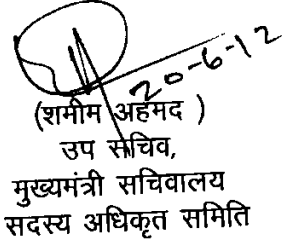 20-6-12
(शमीम अहमद )
उप सचिव,
मुख्यमंत्री सचिवालय
सदस्य अधिकृत समिति